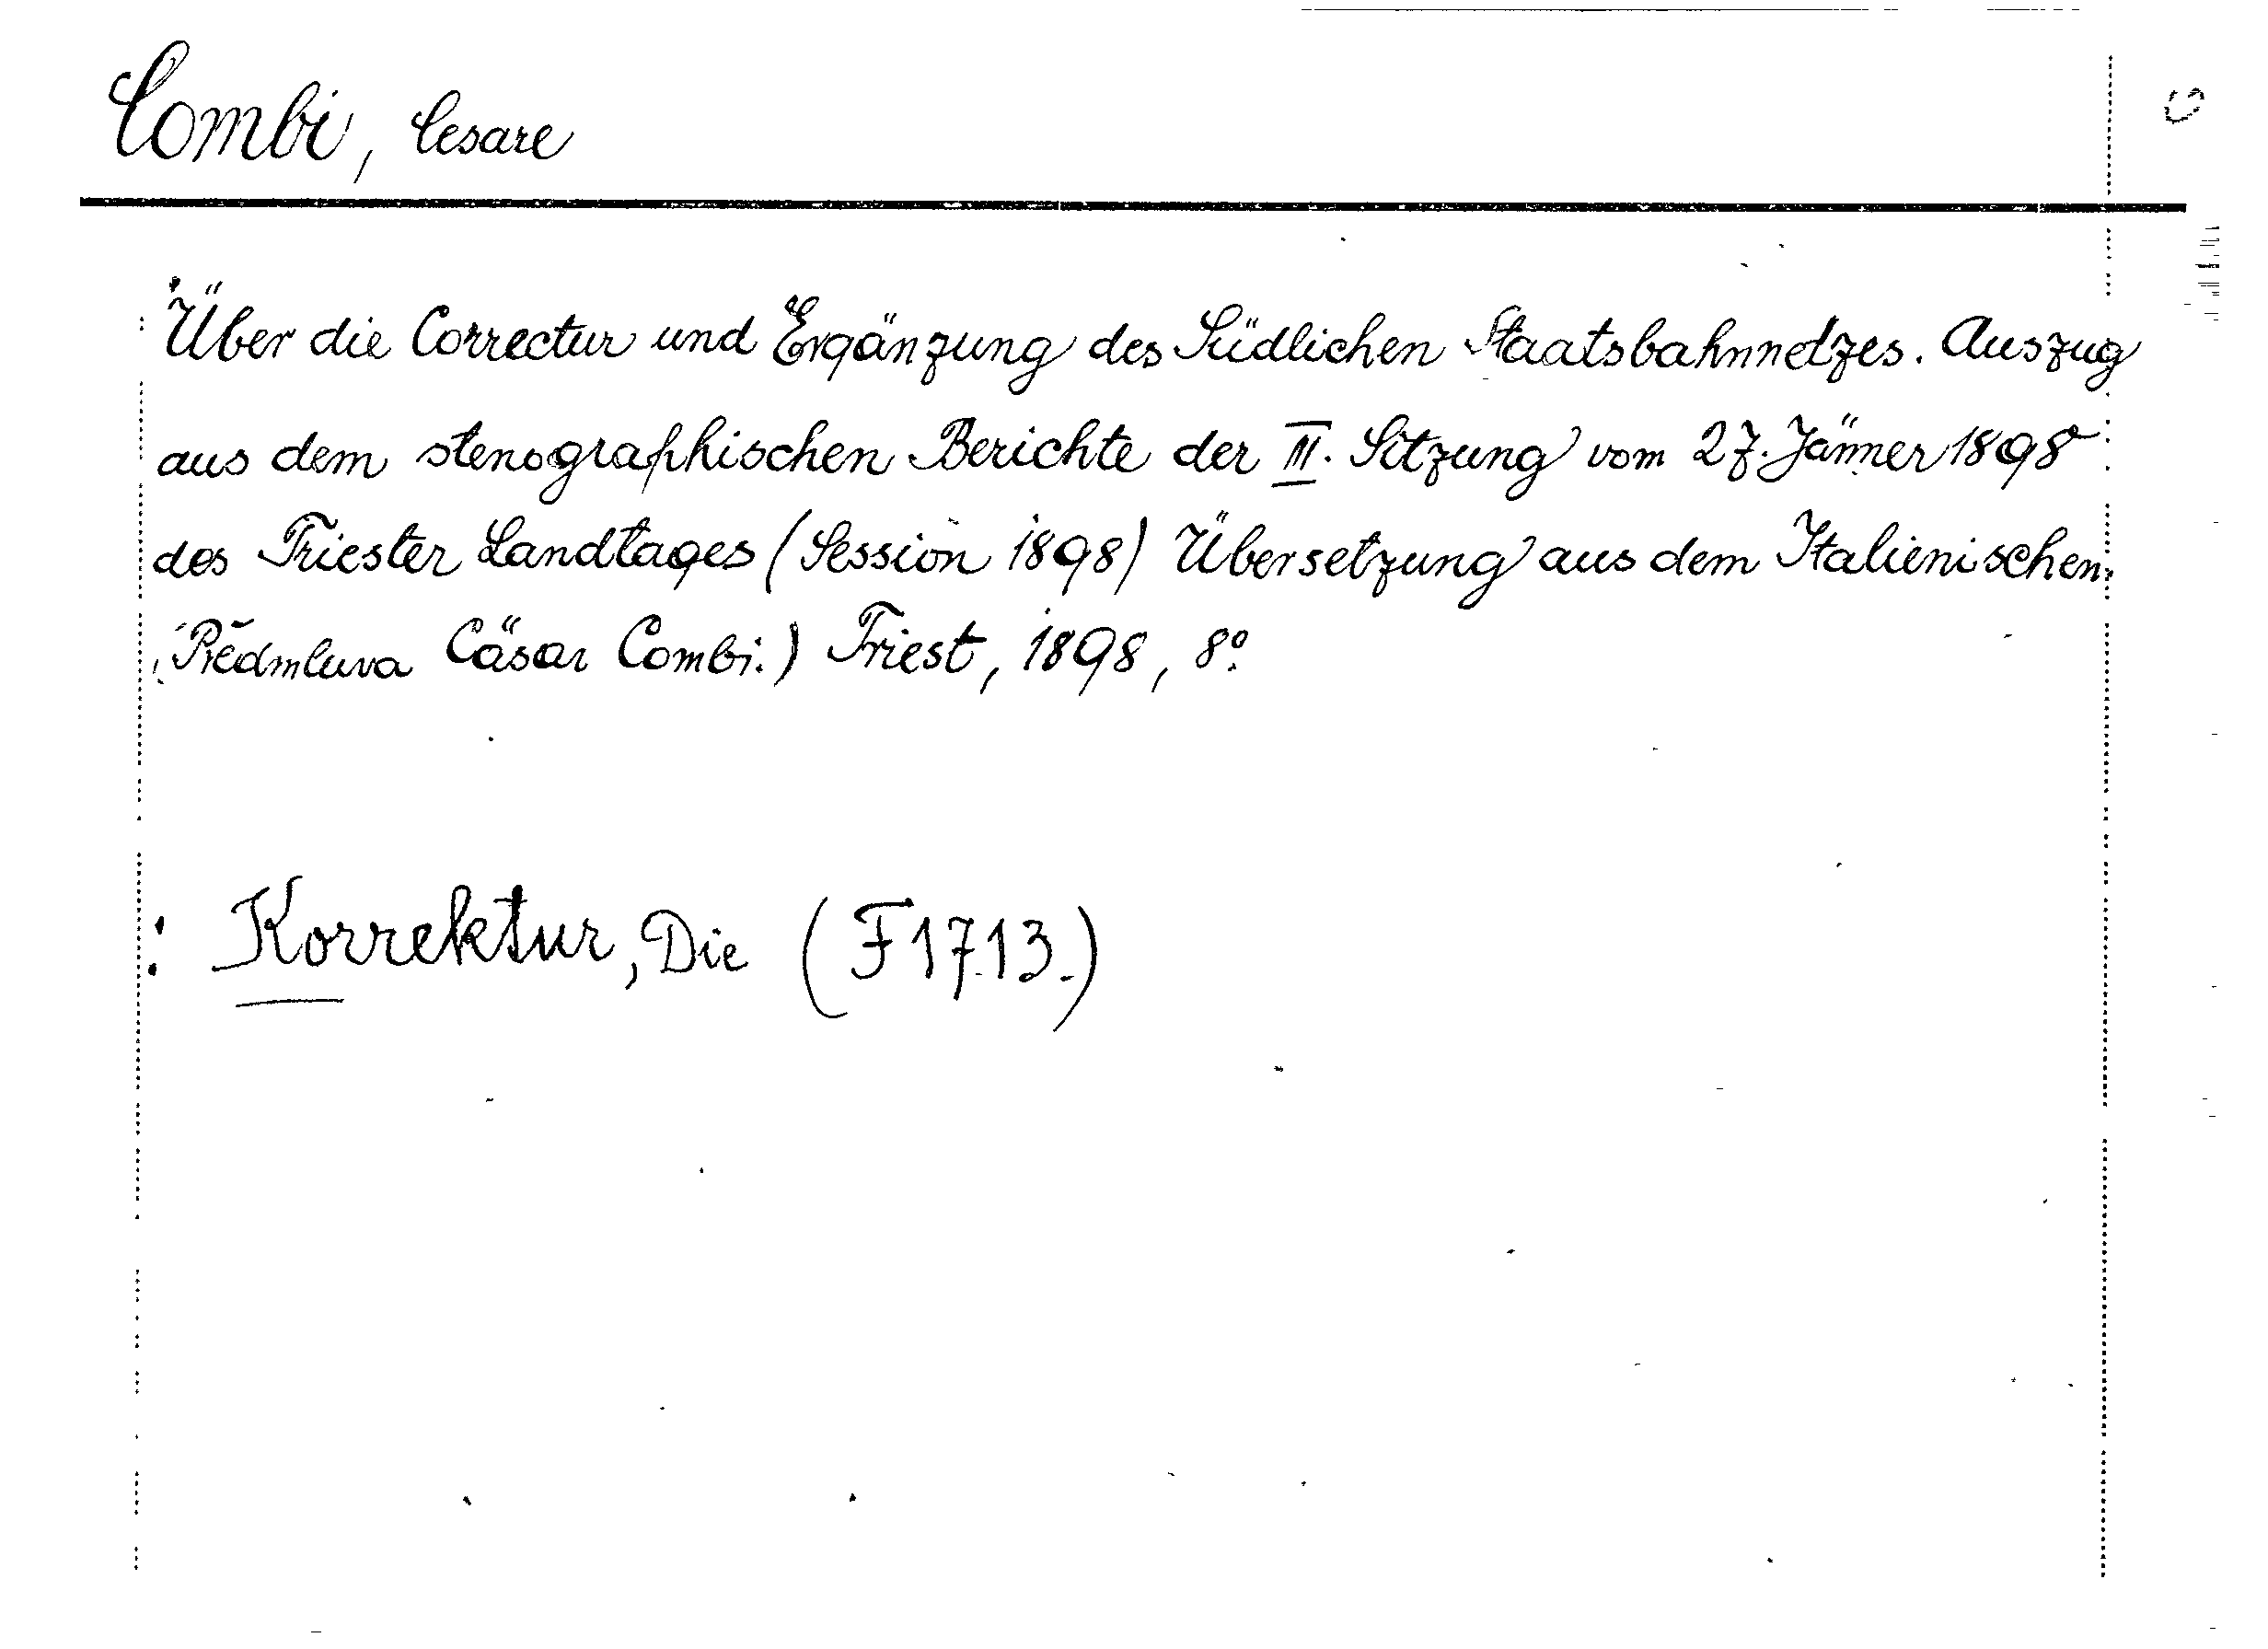 Combi, Cesare
Über die Correctur und Ergänzung des Südlichen Staatsbahnnetzes. Auszug
aus dem stenographischen Berichte der III. Sitzung vom 27. Jänner 1898
des Triester Landtages (Session 1898) Übersetzung aus dem Italienischen.
(Předmluva Cäsar Combi.) Triest, 1898, 8°.
: Korrektur, Die (F 1713.)